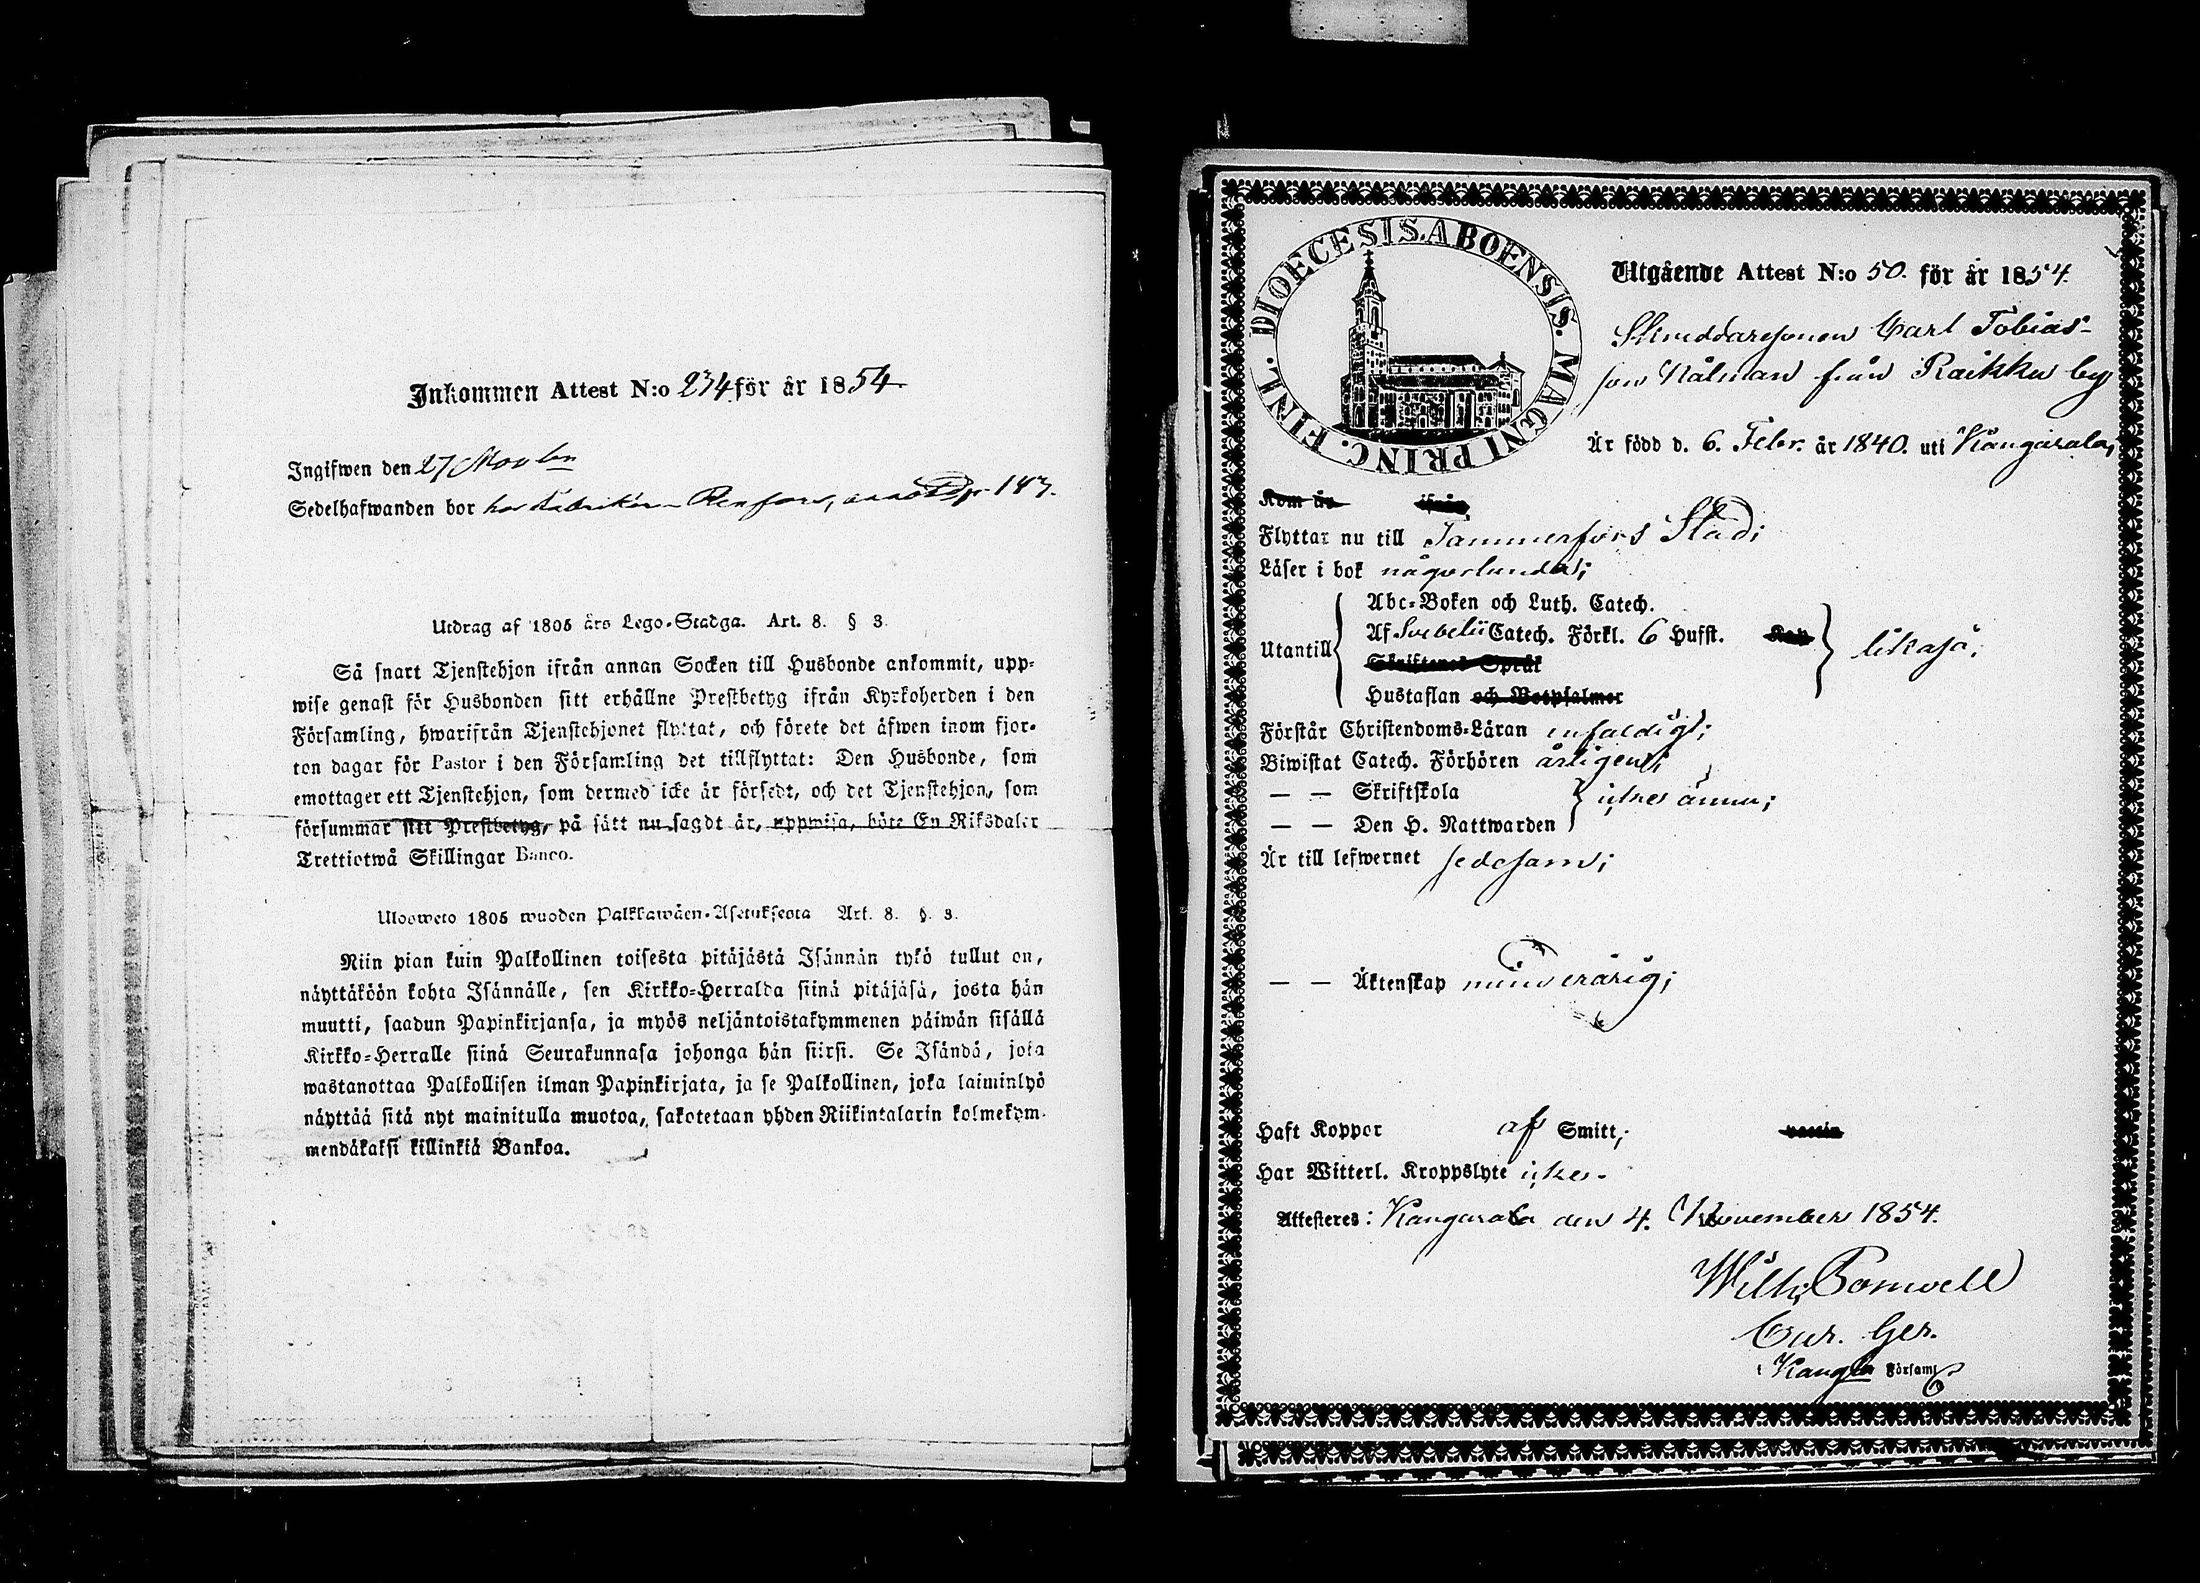 Inkommen Attest N:o 234 för år 1854
Ingifwen den 27 Novbr
Sedelhafwanden bor hos Fabrikör Renfors, p. 143.
Utdrag af 1805 års Lego-Stadga. Art. 8. § 3.
Så snart Tjenstehjon ifrån annan Socken till Husbonde ankommit, upp-
wise genast för Husbonden sitt erhållne Prestbetyg ifrån Kyrkoherden i den
Församling, hwarifrån Tjenstehjonet flyttat, och förete det äfwen inom fjor-
ton dagar för Pastor i den Församling det tillflyttat: Den Husbonde, som
emottager ett Tjenstehjon, som dermed icke är försedt, och det Tjenstehjon, som
försummar sitt Prestbetyg, på sätt nu sagdt är, uppwisa, böte En Riksdaler
Trettiotwå Skillingar Banco.
Ulosweto 1805 wuoden Palkkawäen-Asetuksesta Art. 8. §. 3.
Niin pian kuin Palkollinen toisesta pitäjästä Isännän tykö tullut on,
näyttäköön kohta Isännälle, sen Kirkko-Herralda siinä pitäjäsä, josta hän
muutti, saadun Papinkirjansa, ja myös neljäntoistakymmenen päiwän sisällä
Kirkko-Herralle siinä Seurakunnasa johonga hän siirsi. Se Isändä, joka
wastanottaa Palkollisen ilman Papinkirjata, ja se Palkollinen, joka laiminlyö
näyttää sitä nyt mainitulla muotoa, sakotetaan yhden Riikintalarin kolmekym-
mendäkaksi killinkiä Bankoa.
DIOECESIS. ABOENSIS. MAGNI PRINC. FINL.
Utgående Attest N:o 50. för år 1854.
Skräddaresonen Carl Tobias-
son Nålman från Raikku by
Är född d. 6. Febr. år 1840. uti Kangasala,
Kom år ifrån
Flyttar nu till Tammerfors Stad;
Läser i bok någorlunda;
Utantill
Abc-Boken och Luth. Catech.
Af Svebelii Catech. Förkl. 6 Hufst. Kap
Skriftenes Språk
Hustaflan och Botpsalmer
likaså;
Förstår Christendoms-Läran enfaldigt;
Biwistat Catech. Förhören årligen;
— — Skriftskola
— — Den H. Nattwarden
icke ännu;
Är till lefwernet sedesam;
— — Äktenskap minderårig;
Haft Koppor af Smitt; vaccin
Har Witterl. Kroppslyte icke.
Attesteres: Kangasala den 4. November 1854.
Wilh. Pomoell
Cur. Ger.
i Kangla Församl